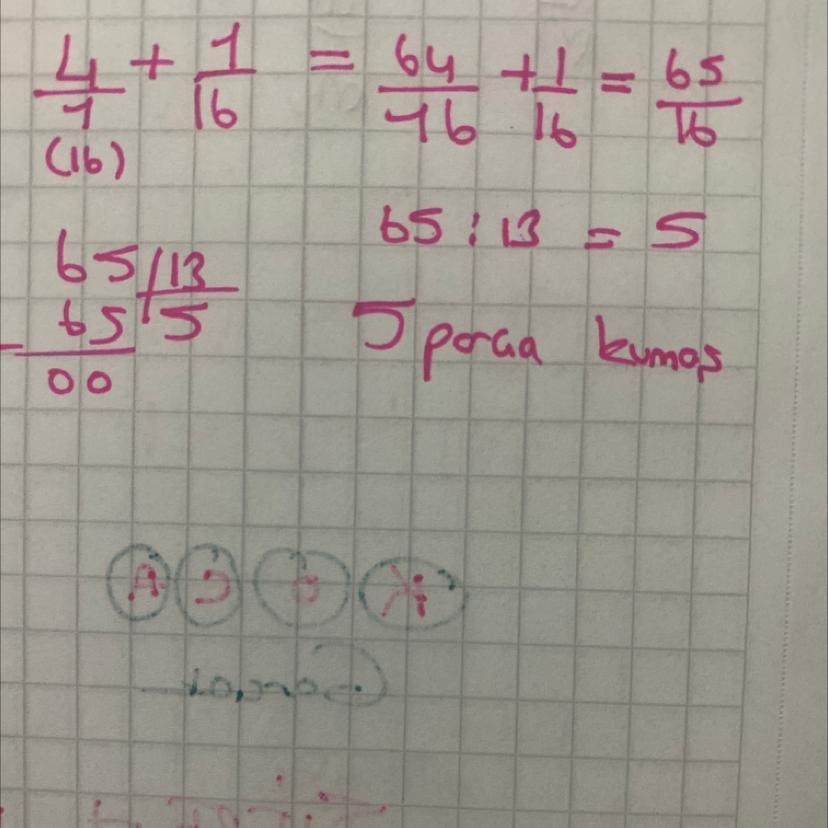 4/1 + 1/16 = 64/16 + 1/16 = 65/16
(16)
65 : 13 = 5
65 / 13
- 65 5
00
5 parça kumaş